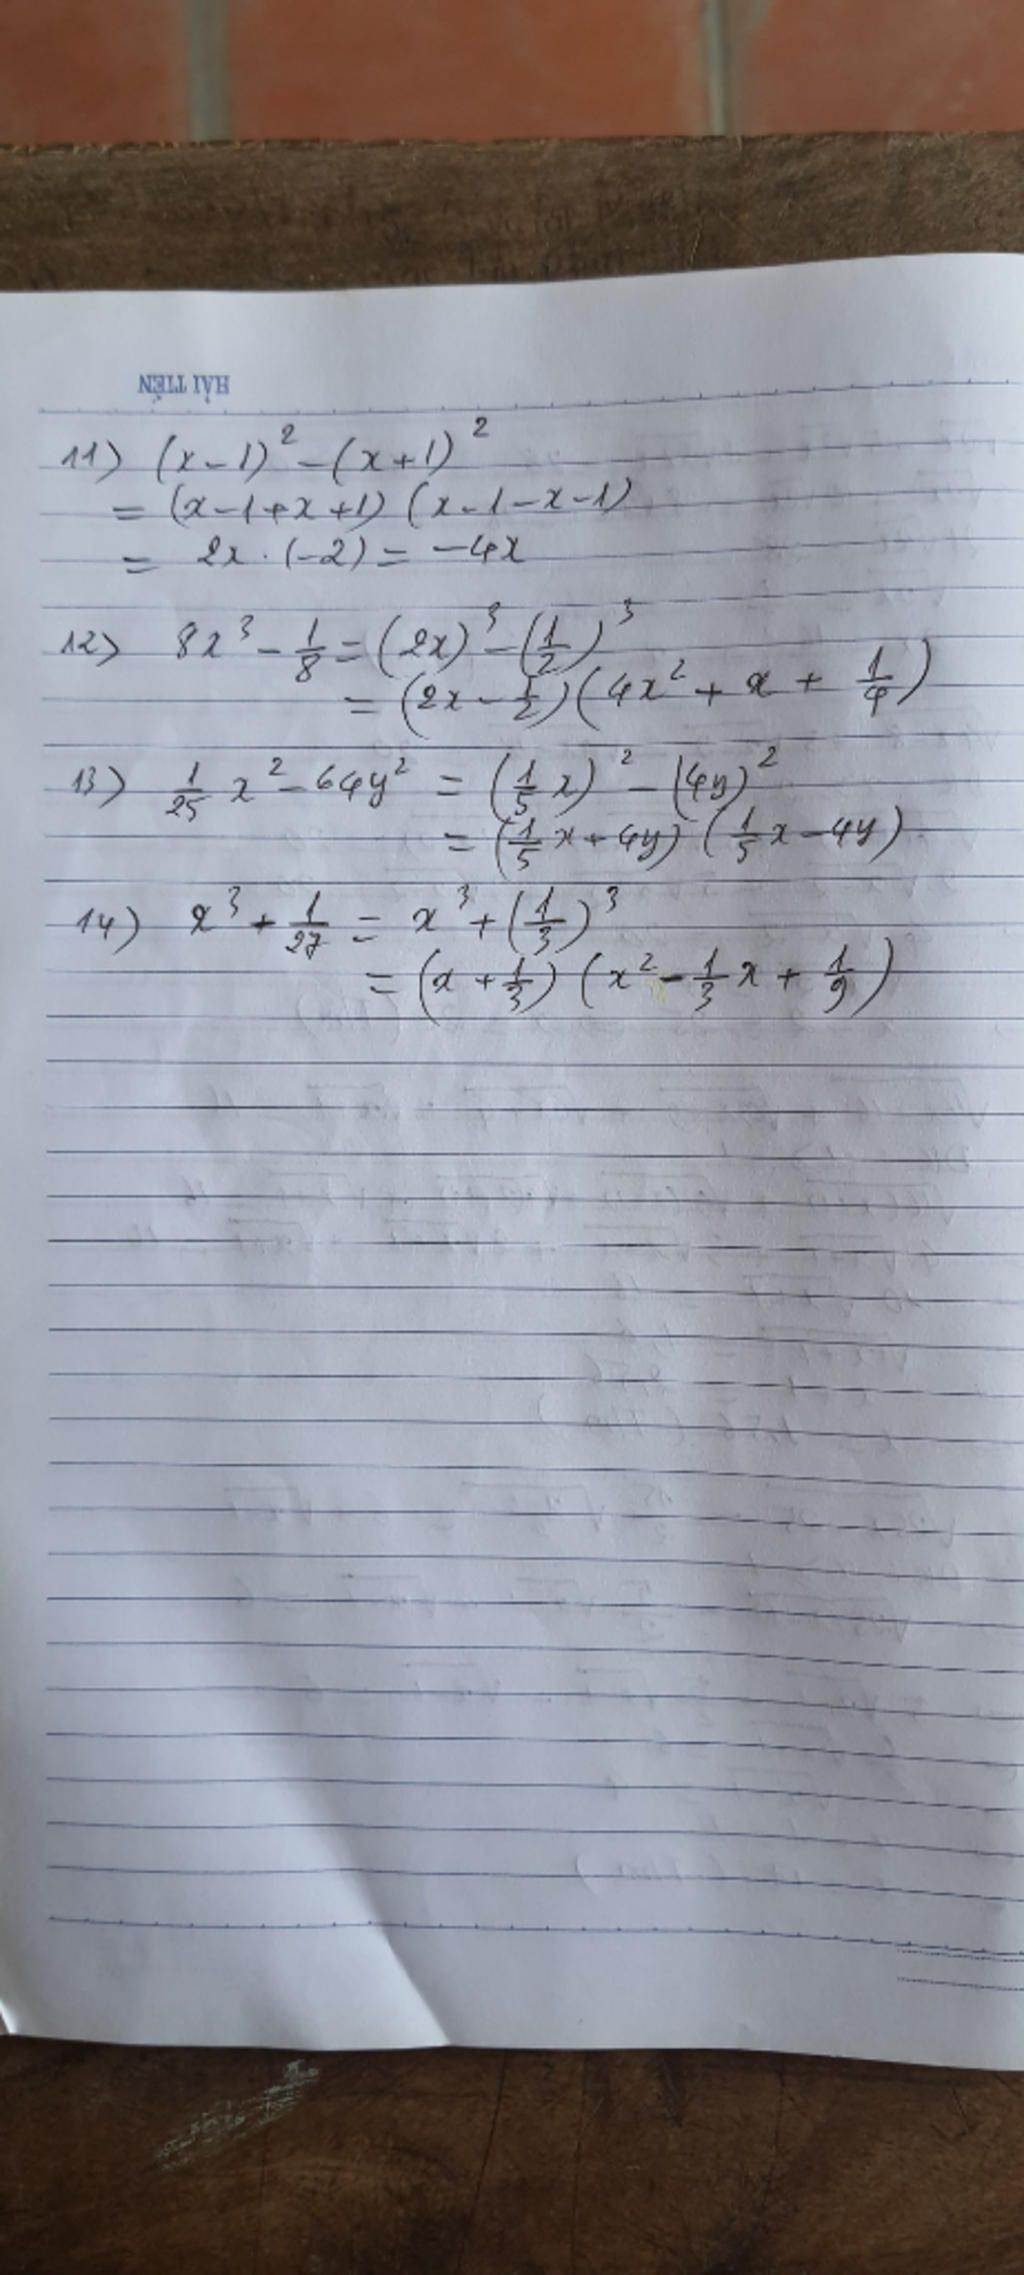 HẢI TIẾN
11) (x-1)² - (x+1)²
= (x-1+x+1) (x-1-x-1)
= 2x . (-2) = -4x
12) 8x³ - 1/8 = (2x)³ - (1/2)³
= (2x - 1/2)(4x² + x + 1/4)
13) 1/25 x² - 64y² = (1/5 x)² - (4y)²
= (1/5 x + 4y) (1/5 x - 4y)
14) x³ + 1/27 = x³ + (1/3)³
= (x + 1/3) (x² - 1/3 x + 1/9)